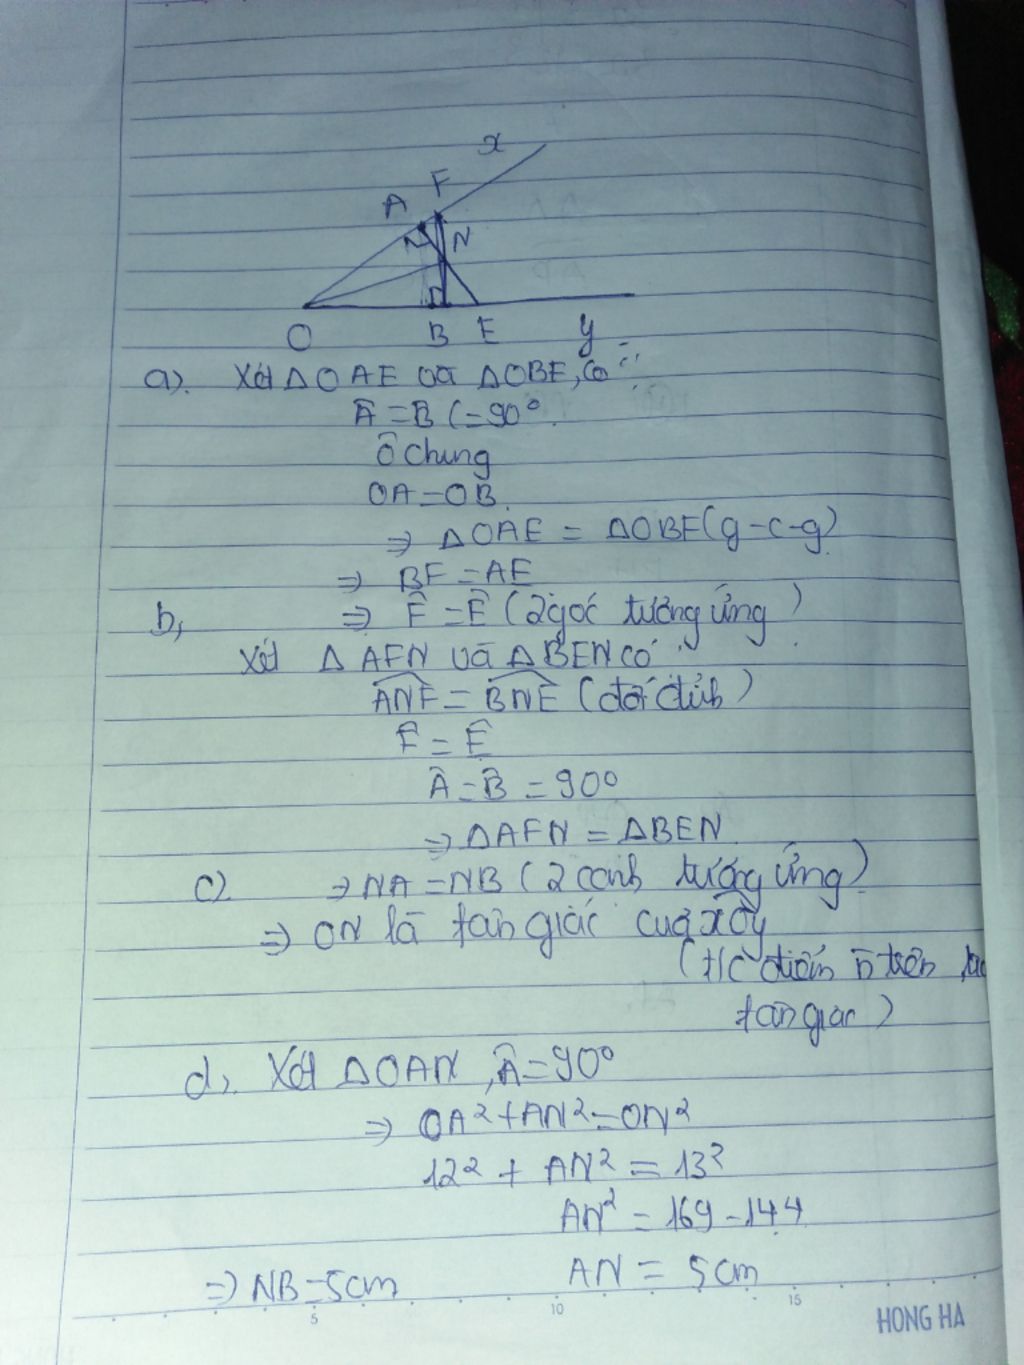 x
A
F
N
O
B E
y
a). Xét ΔOAE và ΔOBF, có:
Â = B̂ (=90°
Ô chung
OA=OB.
⇒ ΔOAE = ΔOBF (g-c-g)
⇒ BF = AE
b, ⇒ F̂ = Ê (2 góc tương ứng)
Xét ΔAFN và ΔBEN có:
ANF = BNE (đối đỉnh)
F̂ = Ê
Â = B̂ = 90°
⇒ ΔAFN = ΔBEN
c) ⇒ NA = NB (2 cạnh tướng ứng)
⇒ ON là giác của xôy
(T/C điểm trên
giac)
d, Xét ΔOAN, Â=90°
⇒ OA² + AN² = ON²
12² + AN² = 13²
AN² = 169 - 144
AN = 5cm
⇒ NB = 5cm
5
10
15
HONG HA